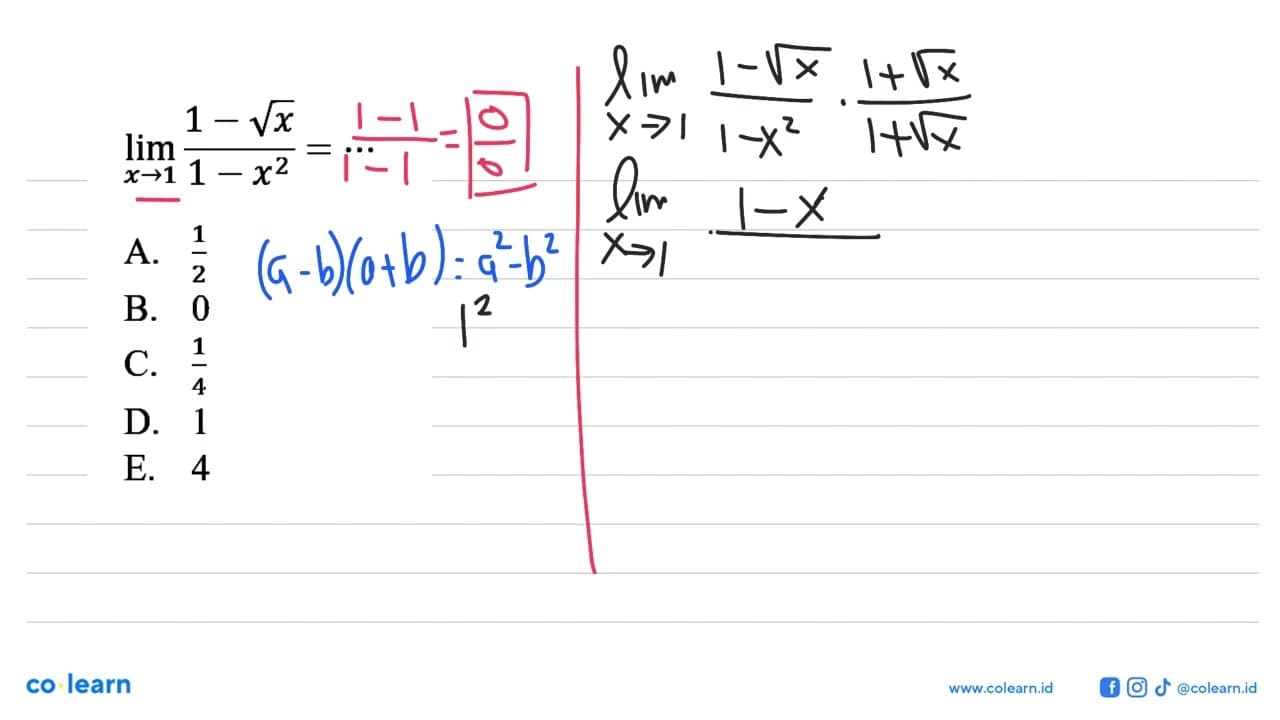 lim x→1 (1 − √x)/(1 − x²) = ... (1−1)/(1−1) = 0/0
A. 1/2
B. 0
C. 1/4
D. 1
E. 4
(a-b)(a+b) = a²-b²
1²
lim x→1 (1-√x)/(1-x²) · (1+√x)/(1+√x)
lim x→1 1-x
co·learn
www.colearn.id
@colearn.id